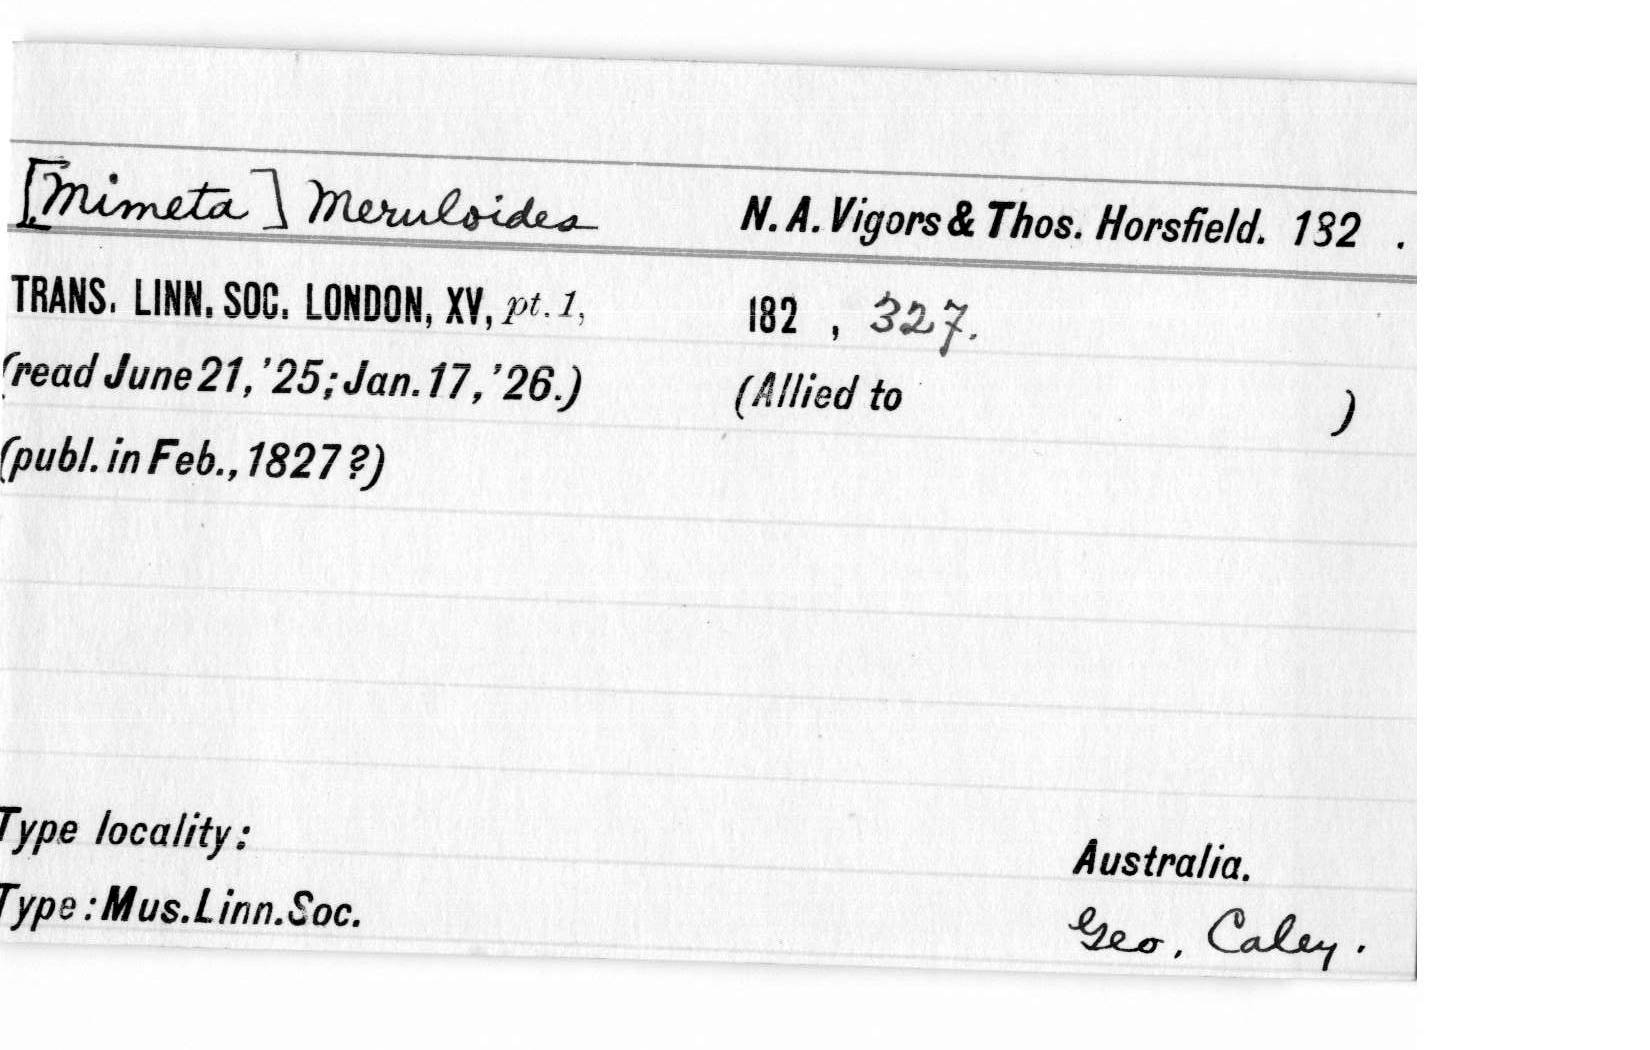 [Mimeta] Meruloides N. A. Vigors & Thos. Horsfield. 182 .
TRANS. LINN. SOC. LONDON, XV, pt. 1, 182 , 327.
(read June 21, '25; Jan. 17, '26.) (Allied to )
(publ. in Feb., 1827 ?)
Type locality: Australia.
Type : Mus. Linn. Soc. Geo. Caley.